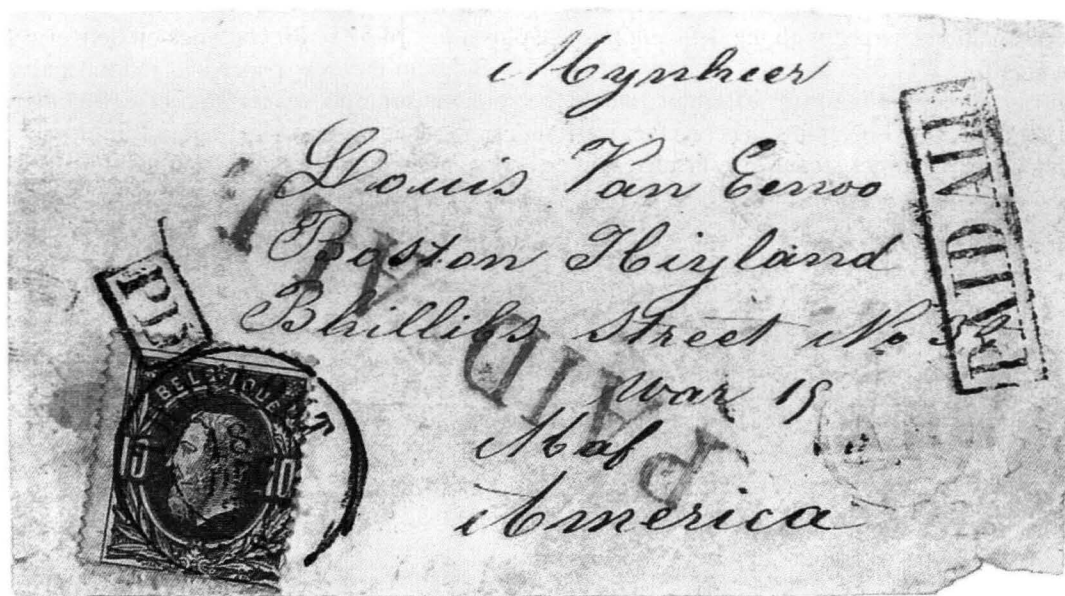 Mynheer
Louis Van Eenoo
Boston Hiyland
Bhillibs Street No 32
War 19
Maf
America
PAID ALL
PAID ALL
PD
BELGIQUE
10 10